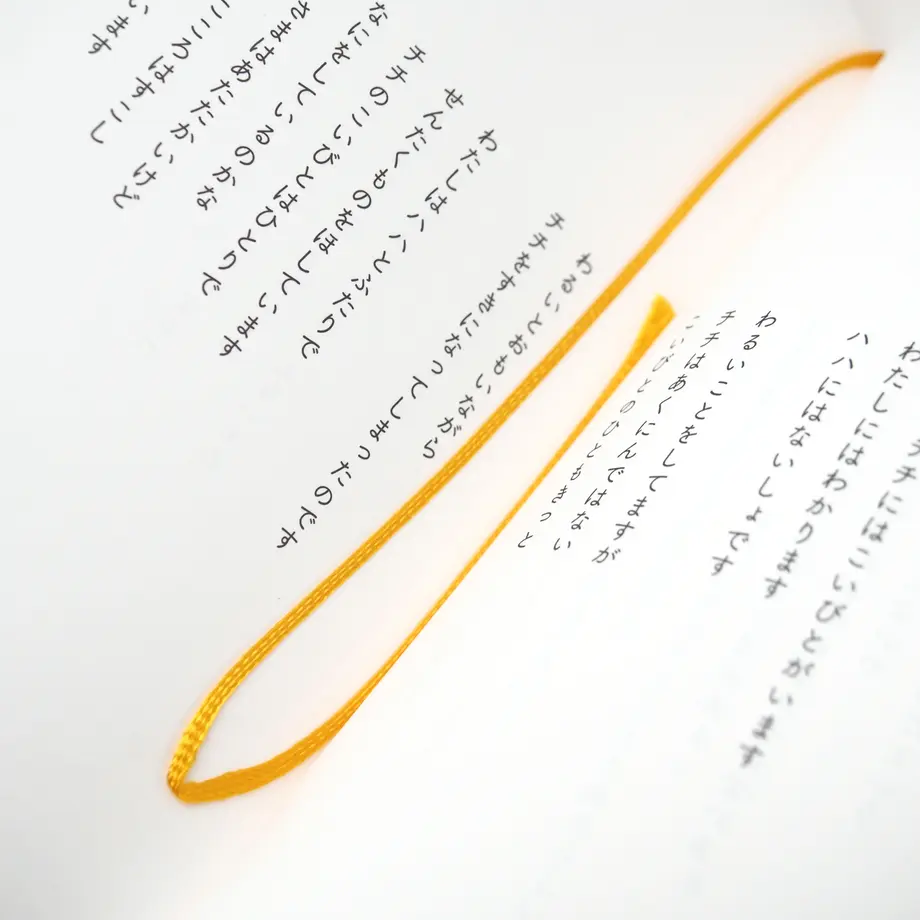 チにはこいびとがいます
わたしにはわかります
ハハにはないしょです
わるいことをしてますが
チチはあくにんではない
こいびとのひともきっと
わるいとおもいながら
チチをすきになってしまったのです
わたしはハハとふたりで
せんたくものをほしています
チチのこいびとはひとりで
なにをしているのかな
さまはあたたかいけど
こころはすこし
います